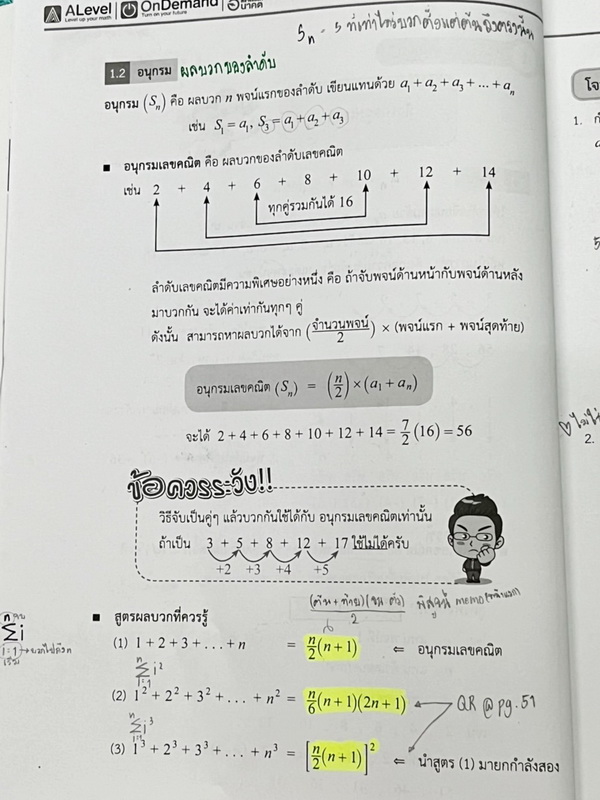 ALevel OnDemand
Level up your math Turn on your future
1.2 อนุกรม ผลบวกของลำดับ
อนุกรม (Sₙ) คือ ผลบวก n พจน์แรกของลำดับ เขียนแทนด้วย a₁ + a₂ + a₃ + ... + aₙ
เช่น S₁ = a₁, S₃ = a₁ + a₂ + a₃
■ อนุกรมเลขคณิต คือ ผลบวกของลำดับเลขคณิต
เช่น 2 + 4 + 6 + 8 + 10 + 12 + 14
ทุกคู่รวมกันได้ 16
ลำดับเลขคณิตมีความพิเศษอย่างหนึ่ง คือ ถ้าจับพจน์ด้านหน้ากับพจน์ด้านหลัง
มาบวกกัน จะได้ค่าเท่ากันทุกๆ คู่
ดังนั้น สามารถหาผลบวกได้จาก (จำนวนพจน์/2) × (พจน์แรก + พจน์สุดท้าย)
อนุกรมเลขคณิต (Sₙ) = (n/2) × (a₁ + aₙ)
จะได้ 2 + 4 + 6 + 8 + 10 + 12 + 14 = 7/2 (16) = 56
ข้อควรระวัง!!
วิธีจับเป็นคู่ๆ แล้วบวกกันใช้ได้กับ อนุกรมเลขคณิตเท่านั้น
ถ้าเป็น 3 + 5 + 8 + 12 + 17 ใช้ไม่ได้ครับ
+2 +3 +4 +5
(ต้น + ท้าย)
2
■ สูตรผลบวกที่ควรรู้
(1) 1 + 2 + 3 + ... + n = n/2 (n + 1) ⇐ อนุกรมเลขคณิต
n
Σ i²
i=1
(2) 1² + 2² + 3² + ... + n² = n/6 (n + 1)(2n + 1) QR @ pg. 51
n
Σ i³
i=1
(3) 1³ + 2³ + 3³ + ... + n³ = [n/2 (n + 1)]² ⇐ นำสูตร (1) มายกกำลังสอง
n
Σ i
i=1
โจ
1.
2.